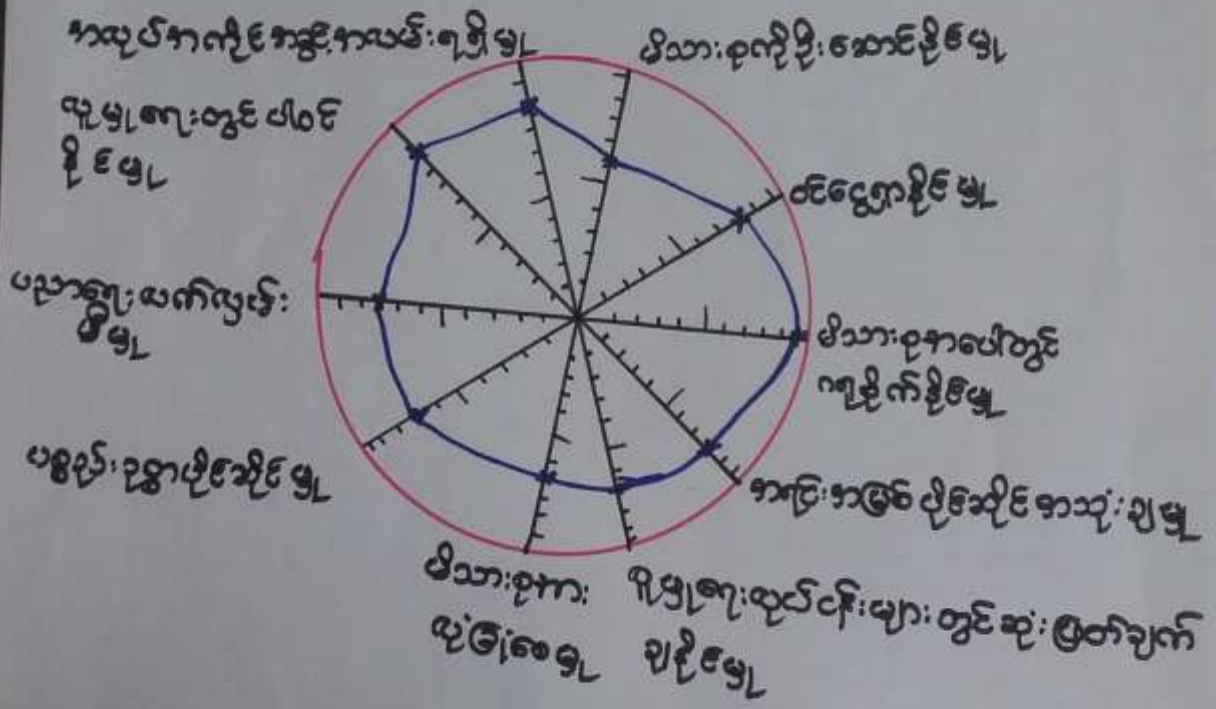 အလုပ်အကိုင်အခွင့်အလမ်းရရှိမှု
မိသားစုကိုဦးဆောင်နိုင်မှု
လူမှုရေးတွင်ပါဝင်
နိုင်မှု
ဝင်ငွေရှာနိုင်မှု
ပညာရေးလက်လှမ်း
မှီမှု
မိသားစုအပေါ်တွင်
ဂရုစိုက်နိုင်မှု
ပစ္စည်းဥစ္စာပိုင်ဆိုင်မှု
အရင်းအမြစ်ပိုင်ဆိုင်အသုံးချမှု
မိသားစုအား
လုံခြုံစေမှု
လူမှုရေးလုပ်ငန်းများတွင်ဆုံးဖြတ်ချက်
ချနိုင်မှု